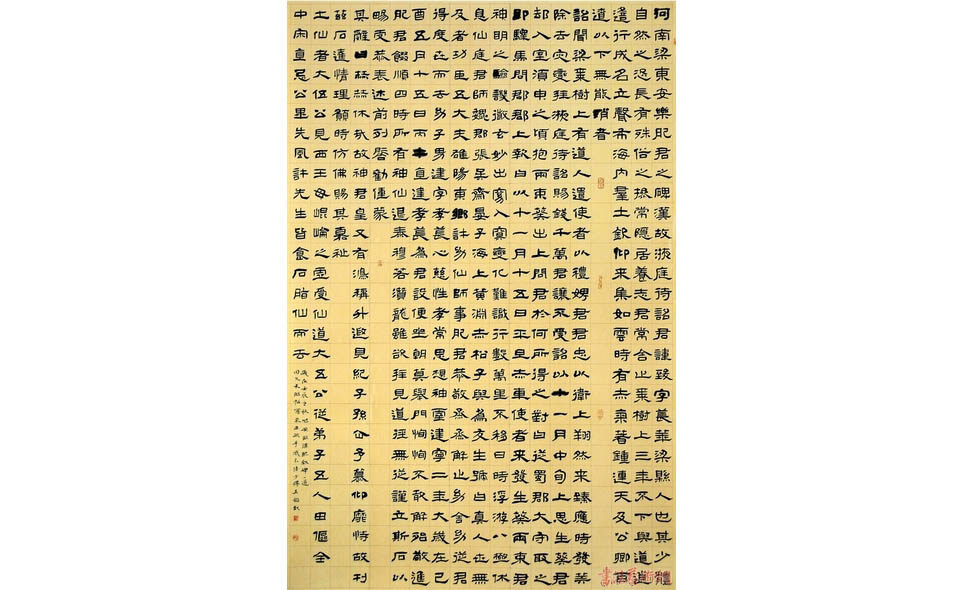 河南梁東安樂肥君之碑漢故掖庭待詔君諱致字萇華梁縣人也其少體
自然之恣長有殊俗之操常隱居養志君常舍止棗樹上三年不下與道逍
遙行成名立聲布海内羣士欽仰來集如雲時有赤氣著鍾連天及公卿百
遼以下無能消者
詔聞梁棗樹上有道人遣使者以禮娉君君忠以衛上翔然來臻應時發筭
除去灾變拜掖庭待詔賜錢千萬君讓不受詔以十一月中旬上思生葵君
却入室須臾之頃抱兩束葵出上問君於何所得之對曰從蜀郡太守取之
即驛馬問郡郡上報曰以十一月十五日平旦赤車使者來發生葵兩束君
神明之驗譏徹玄妙出窈入冥變化難識行數萬里不移日時浮游八極休
息仙庭君師魏郡張吳齋晏子海上黄淵赤松子與爲友生號曰真人世無
及者功臣五大夫雒陽東鄉許幼仙師事肥君恭敬烝烝解止幼舍幼從君
得度世而去幼子男建字孝萇心慈性孝常思想神靈建寧二年大歲在己
酉五月十五日丙午直建孝萇爲君設便坐朝莫舉門恂恂不敢解殆敬進
肥君餟順四時所有神仙退泰穆若潛龍雖欲拜見道徑無從謹立斯石以
暢虔恭表述前列啓勸僮蒙
其辭曰赫赫休哉故神君皇又有鴻稱升遐見紀子孫企予慕仰靡恃故刊
兹石達情理願時仿佛賜其嘉祉
土仙者大伍公見西王母崐崘之虛受仙道大五公從弟子五人田傴全
中宋直忌公畢先風許先生皆食石脂仙而去